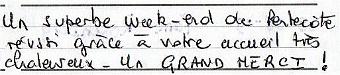 Un superbe week-end de Pentecôte
réussi grâce à votre accueil très
chaleureux - Un GRAND MERCI !